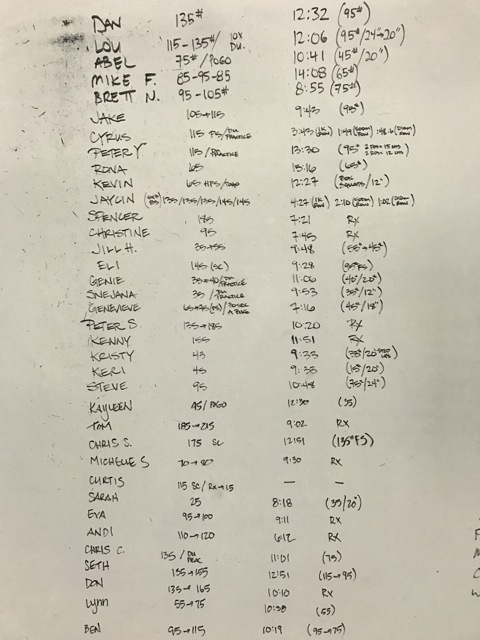 DAN 135# 12:32 (95#)
LOU 115-135#/10X DU. 12:06 (95#/24"→20")
ABEL 75#/POGO 10:41 (45#/20")
MIKE F. 85-95-85 14:08 (65#)
BRETT N. 95-105# 8:55 (75#)
JAKE 105→115 9:43 (95#)
CYRUS 115 PS/DU PRACTICE 3:43 (1K ROW) 1:49 (500m ROW) 1:48.6 (500m ROW)
PETER Y 115/PRACTICE 13:30 (95#
RONA 65 15:16 (65#)
KEVIN 65 HPS/POGO 12:27 (BOX SQUATS/12")
JAYCIN 135/135/135/145/145 4:27 (1K ROW) 2:10 (500m ROW) 1:02 (250m ROW)
SPENCER 185 7:21 RX
CHRISTINE 95 7:45 RX
JILL H. 35→55 9:48 (55#→45#)
ELI 145 (SC) 9:28 (95#FS)
GENIE 35→40/DU PRACTICE 11:06 (40#/20")
SNEJANA 35 /DU PRACTICE 9:53 (35#/12")
GENEVIEVE 7:16 (45#/18")
PETER S. 135→185 10:20 RX
KENNY 155 11:51 RX
KRISTY 43 9:33 (33#/20" STEP UPS)
KERI 45 9:38 (15#/20")
STEVE 95 10:48 (75#/24")
KAYLEEN 45/POGO 12:30 (35)
TOM 185→215 9:02 RX
CHRIS S. 175 SC 12:51 (135# FS)
MICHELLE S 70→80 9:30 RX
CURTIS 115 SC/RX→15 — —
SARAH 25 8:18 (35/20")
EVA 95→100 9:11 RX
ANDI 110→120 6:12 RX
CHRIS C. 135/DU PRAC 11:01 (75)
SETH 135→155 12:51 (115→95)
DON 135→165 10:10 RX
LYNN 55→75 10:38 (55)
BEN 95→115 10:19 (95→75)